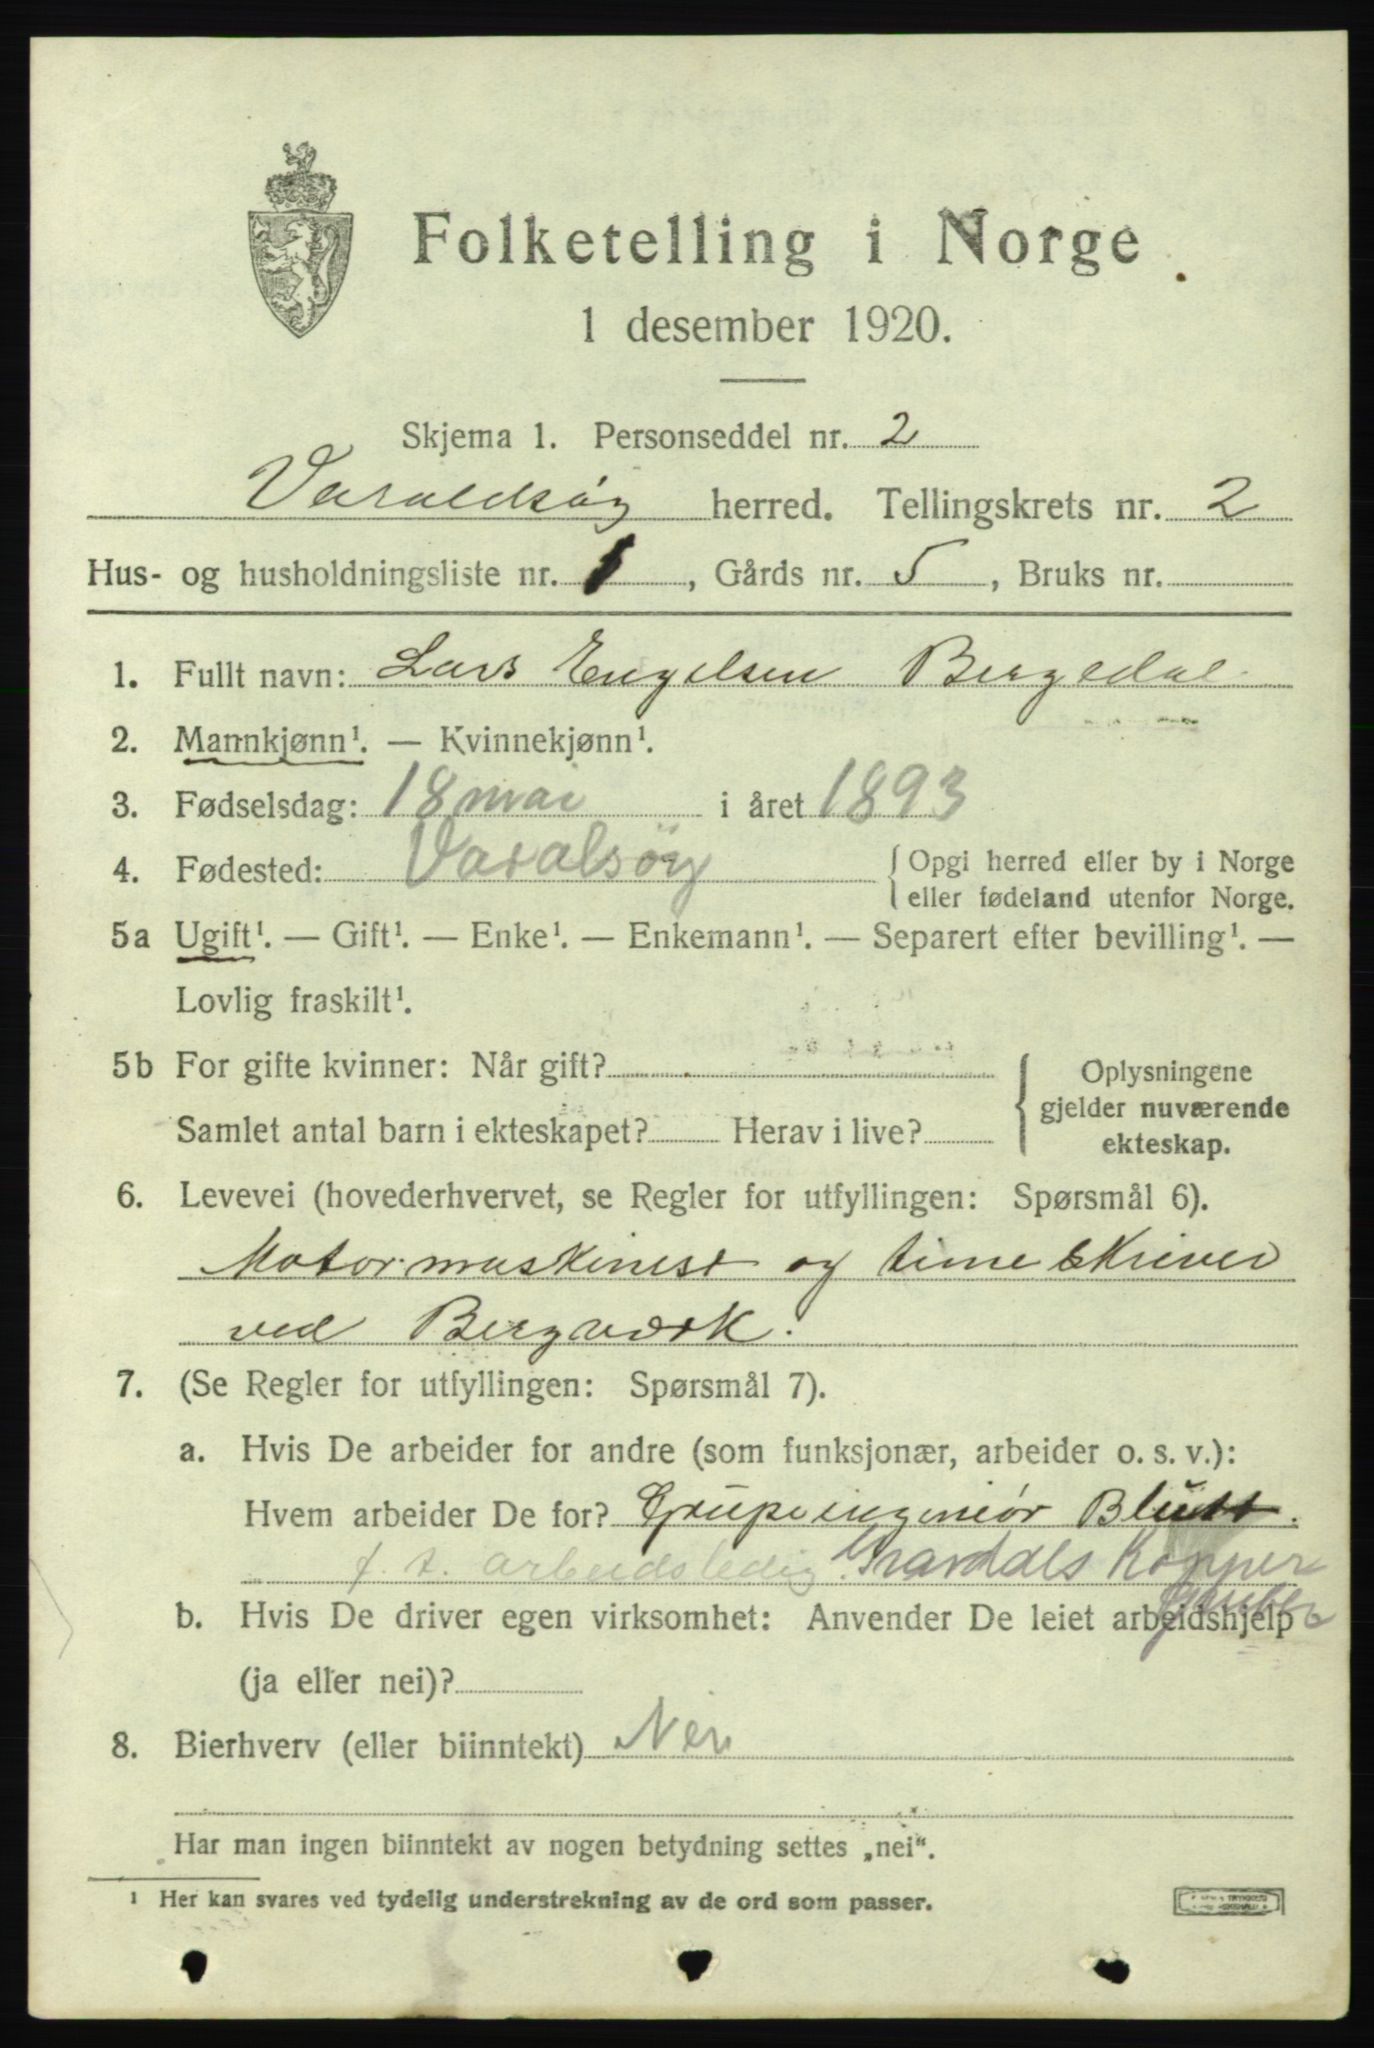 Folketelling i Norge
1 desember 1920.
Skjema 1. Personseddel nr. 2
Varaldsøy herred. Tellingskrets nr. 2
Hus- og husholdningsliste nr. 1, Gårds nr. 5, Bruks nr.
1. Fullt navn: Lars Engelsen Bergedal
2. Mannkjønn¹. — Kvinnekjønn¹.
3. Fødselsdag: 18 mai i året 1893
4. Fødested: Varalsöy {Opgi herred eller by i Norge
eller fødeland utenfor Norge.
5a Ugift¹. — Gift¹. — Enke¹. — Enkemann¹. — Separert efter bevilling¹. —
Lovlig fraskilt¹.
5b For gifte kvinner: Når gift? {Oplysningene
gjelder nuværende
Samlet antal barn i ekteskapet? Herav i live?
ekteskap.
6. Levevei (hovederhvervet, se Regler for utfyllingen: Spørsmål 6).
Motormaskinist og timeskriver
ved Bergværk.
7. (Se Regler for utfyllingen: Spørsmål 7).
a. Hvis De arbeider for andre (som funksjonær, arbeider o. s. v.):
Hvem arbeider De for? ingeniör
f. t. arbeidsledig. Gravdals Kopper
gruber
b. Hvis De driver egen virksomhet: Anvender De leiet arbeidshjelp
(ja eller nei)?
8. Bierhverv (eller biinntekt) Nei
Har man ingen biinntekt av nogen betydning settes „nei“.
¹ Her kan svares ved tydelig understrekning av de ord som passer.